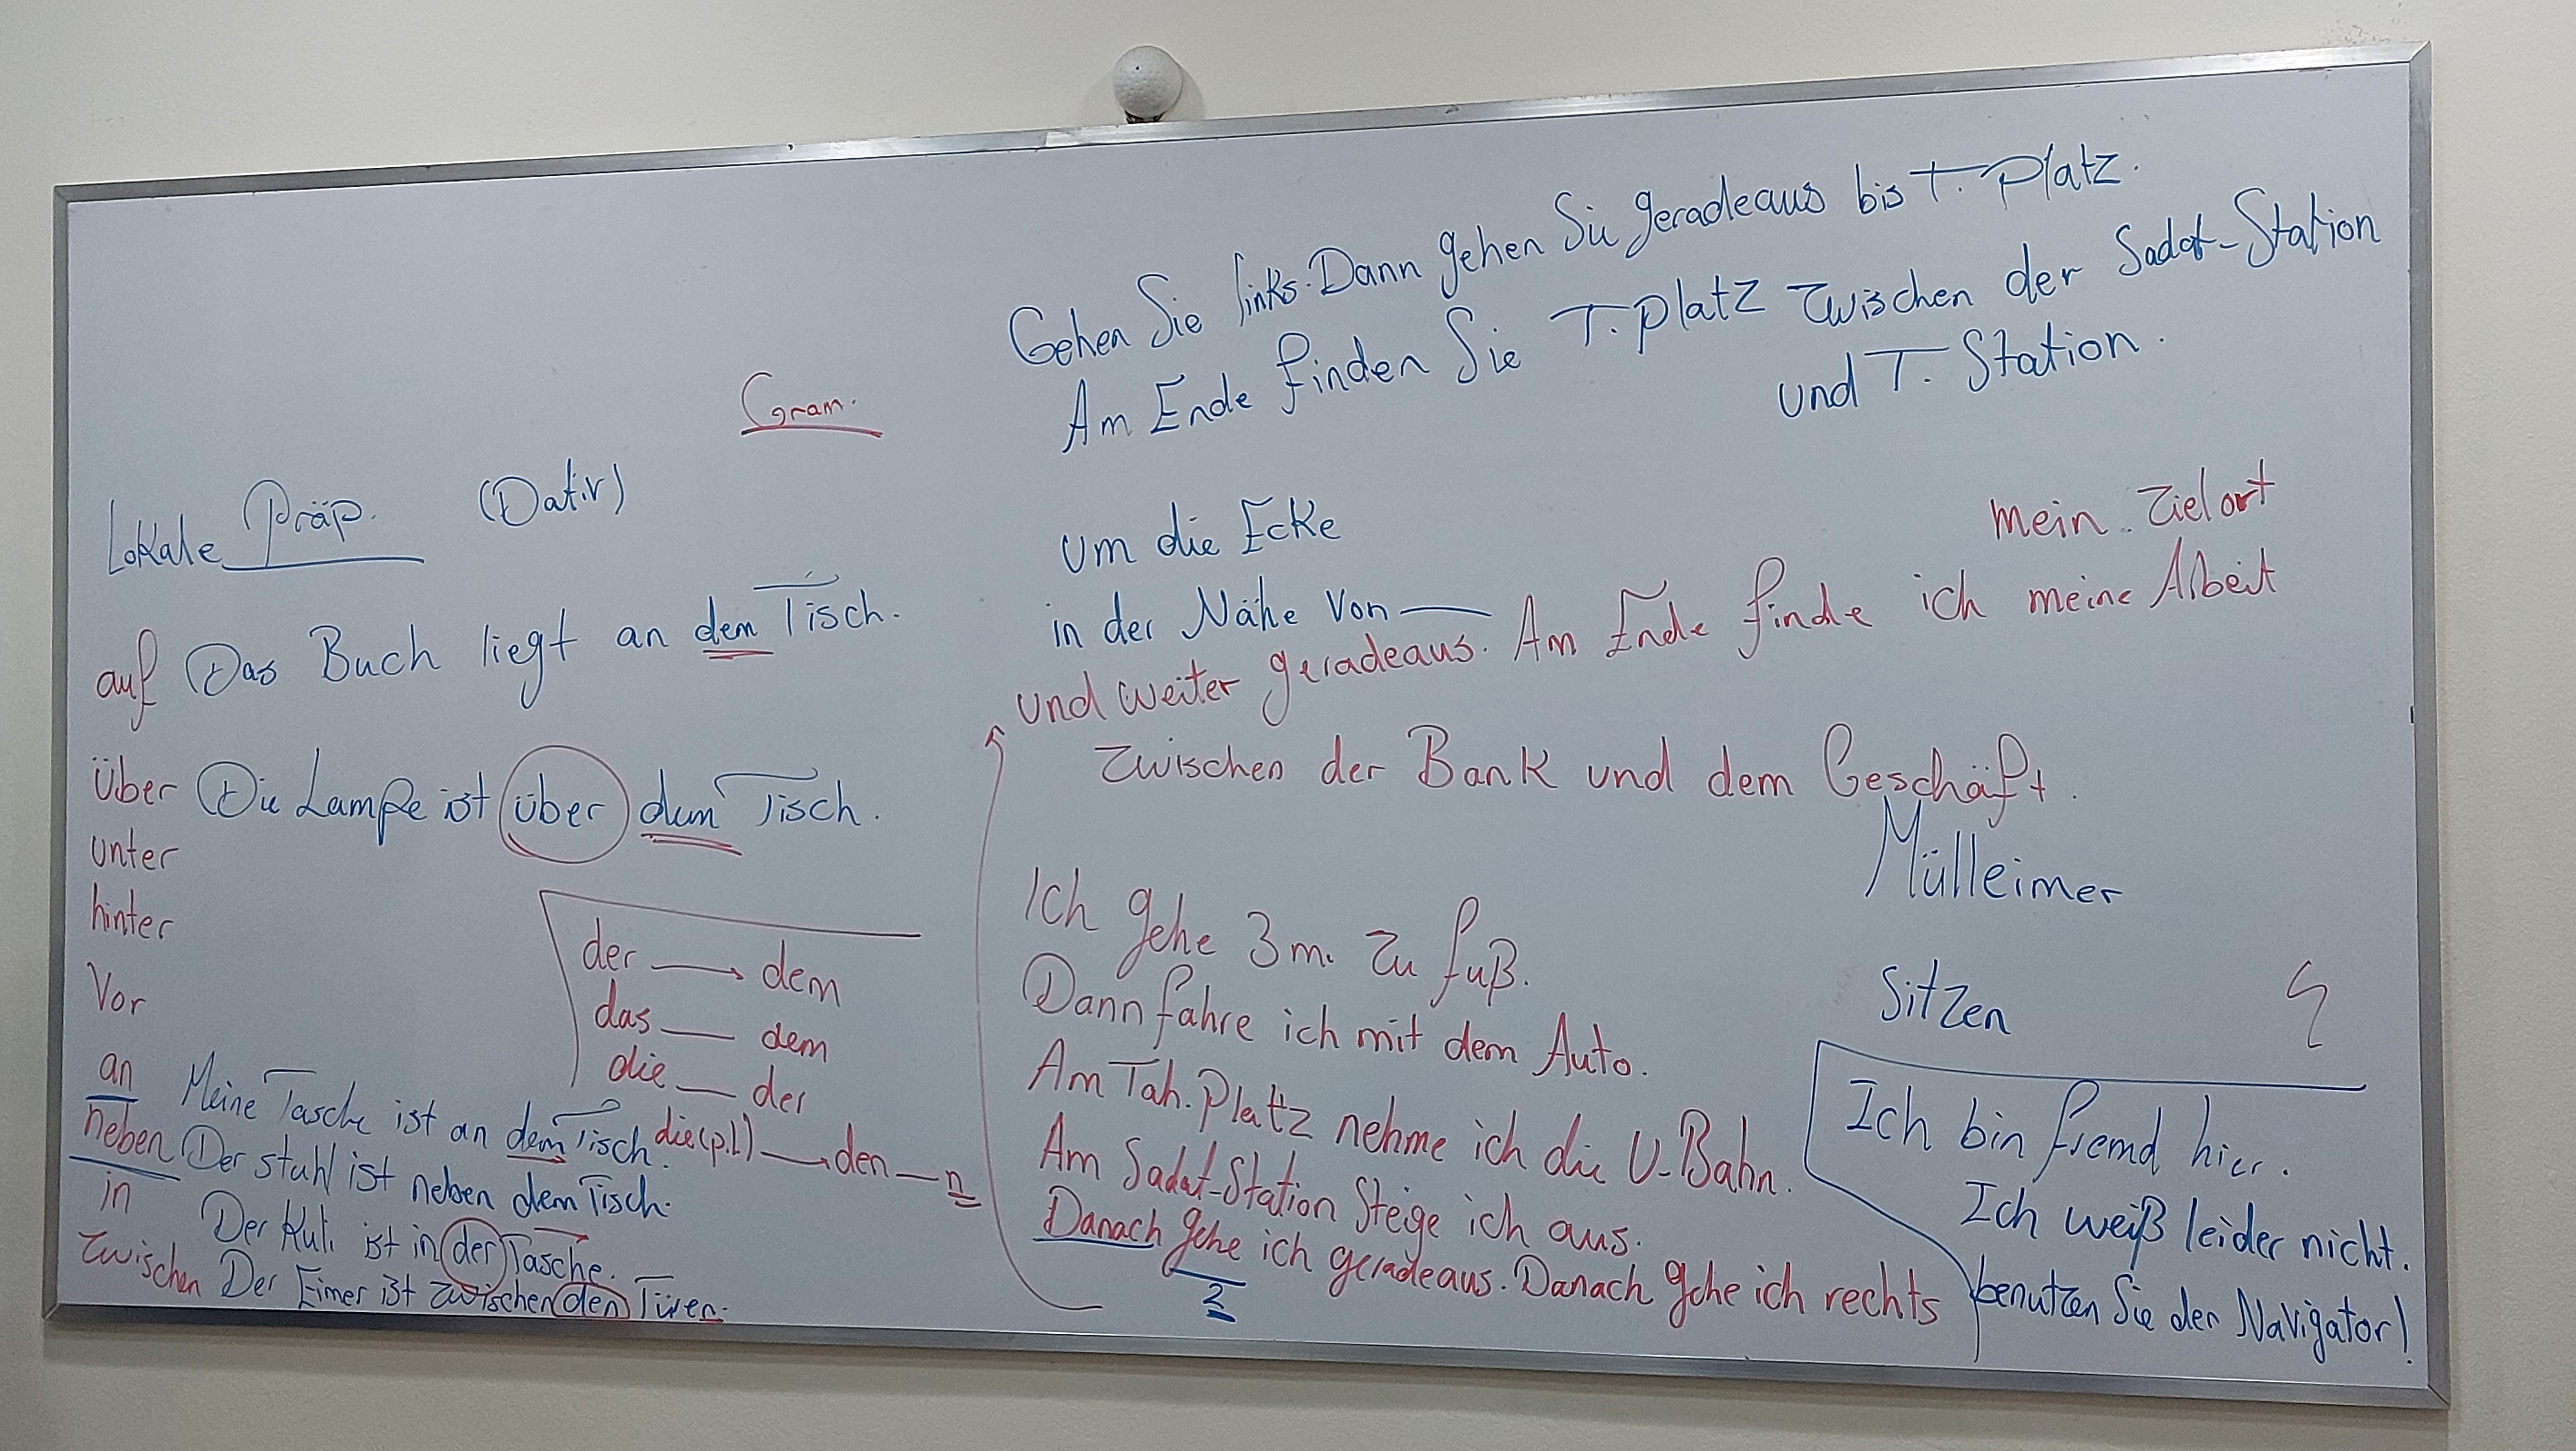 Gram.
Lokale Präp. (Dativ)
auf Das Buch liegt an dem Tisch.
über Die Lampe ist über dem Tisch.
unter
hinter
vor
an Meine Tasche ist an dem Tisch.
neben Der stuhl ist neben dem Tisch.
in Der Kuli ist in der Tasche.
zwischen Der Eimer ist zwischen den Türen.
der → dem
das — dem
die — der
die(pl) → den — n
Gehen Sie links. Dann gehen Sie geradeaus bis T. Platz.
Am Ende finden Sie T. platz zwischen der Sadat-Station
und T. Station.
um die Ecke
in der Nähe von —
mein Zielort
und weiter geradeaus. Am Ende finde ich meine Arbeit
zwischen der Bank und dem Geschäft.
Mülleimer
Ich gehe 3 m. zu fuß.
Dann fahre ich mit dem Auto.
Am Tah. Platz nehme ich die U-Bahn.
Am Sadat-Station Steige ich aus.
Danach gehe ich geradeaus. Danach gehe ich rechts
2
Sitzen
Ich bin fremd hier.
Ich weiß leider nicht.
benutzen Sie den Navigator!